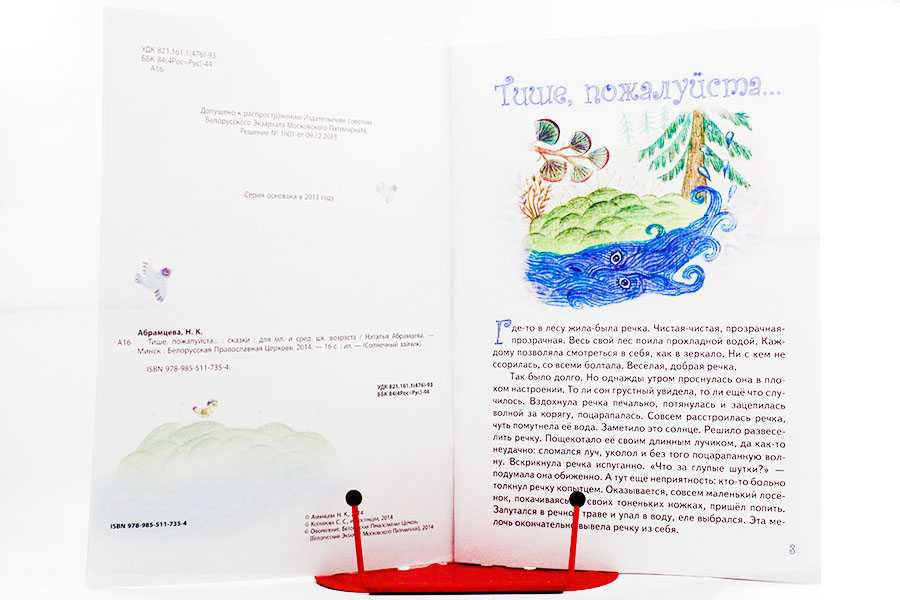 УДК 821.161.1(476)-93
ББК 84(4Рос=Рус)-44
А16
Допущено к распространению Издательским советом
Белорусского Экзархата Московского Патриархата.
Решение № 1601 от 09.12.2013
Серия основана в 2013 году
Абрамцева, Н. К.
А16 Тише, пожалуйста... : сказки : для мл. и сред. шк. возраста / Наталья Абрамцева. —
Минск : Белорусская Православная Церковь, 2014. — 16 с. : ил. — (Солнечный зайчик)
ISBN 978-985-511-735-4.
УДК 821.161.1(476)-93
ББК 84(4Рос=Рус)-44
ISBN 978-985-511-735-4
© Абрамцева Н. К., 2014
© 2014
© Оформление. Белорусская Православная Церковь
(Белорусский Экзархат Московского Патриархата), 2014
Тише, пожалуйста...
Где-то в лесу жила-была речка. Чистая-чистая, прозрачная-
прозрачная. Весь свой лес поила прохладной водой. Каж-
дому позволяла смотреться в себя, как в зеркало. Ни с кем не
ссорилась, со всеми болтала. Весёлая, добрая речка.
Так было долго. Но однажды утром проснулась она в пло-
хом настроении. То ли сон грустный увидела, то ли ещё что слу-
чилось. Вздохнула речка печально, потянулась и зацепилась
волной за корягу, поцарапалась. Совсем расстроилась речка,
чуть помутнела её вода. Заметило это солнце. Решило развесе-
лить речку. Пощекотало её своим длинным лучиком, да как-то
неудачно: сломался луч, уколол и без того поцарапанную вол-
ну. Вскрикнула речка испуганно. «Что за глупые шутки?» —
подумала она обиженно. А тут ещё неприятность: кто-то больно
толкнул речку копытцем. Оказывается, совсем маленький лосё-
нок, покачиваясь на своих тоненьких ножках, пришёл попить.
Запутался в речной траве и упал в воду, еле выбрался. Эта ме-
лочь окончательно вывела речку из себя.
3